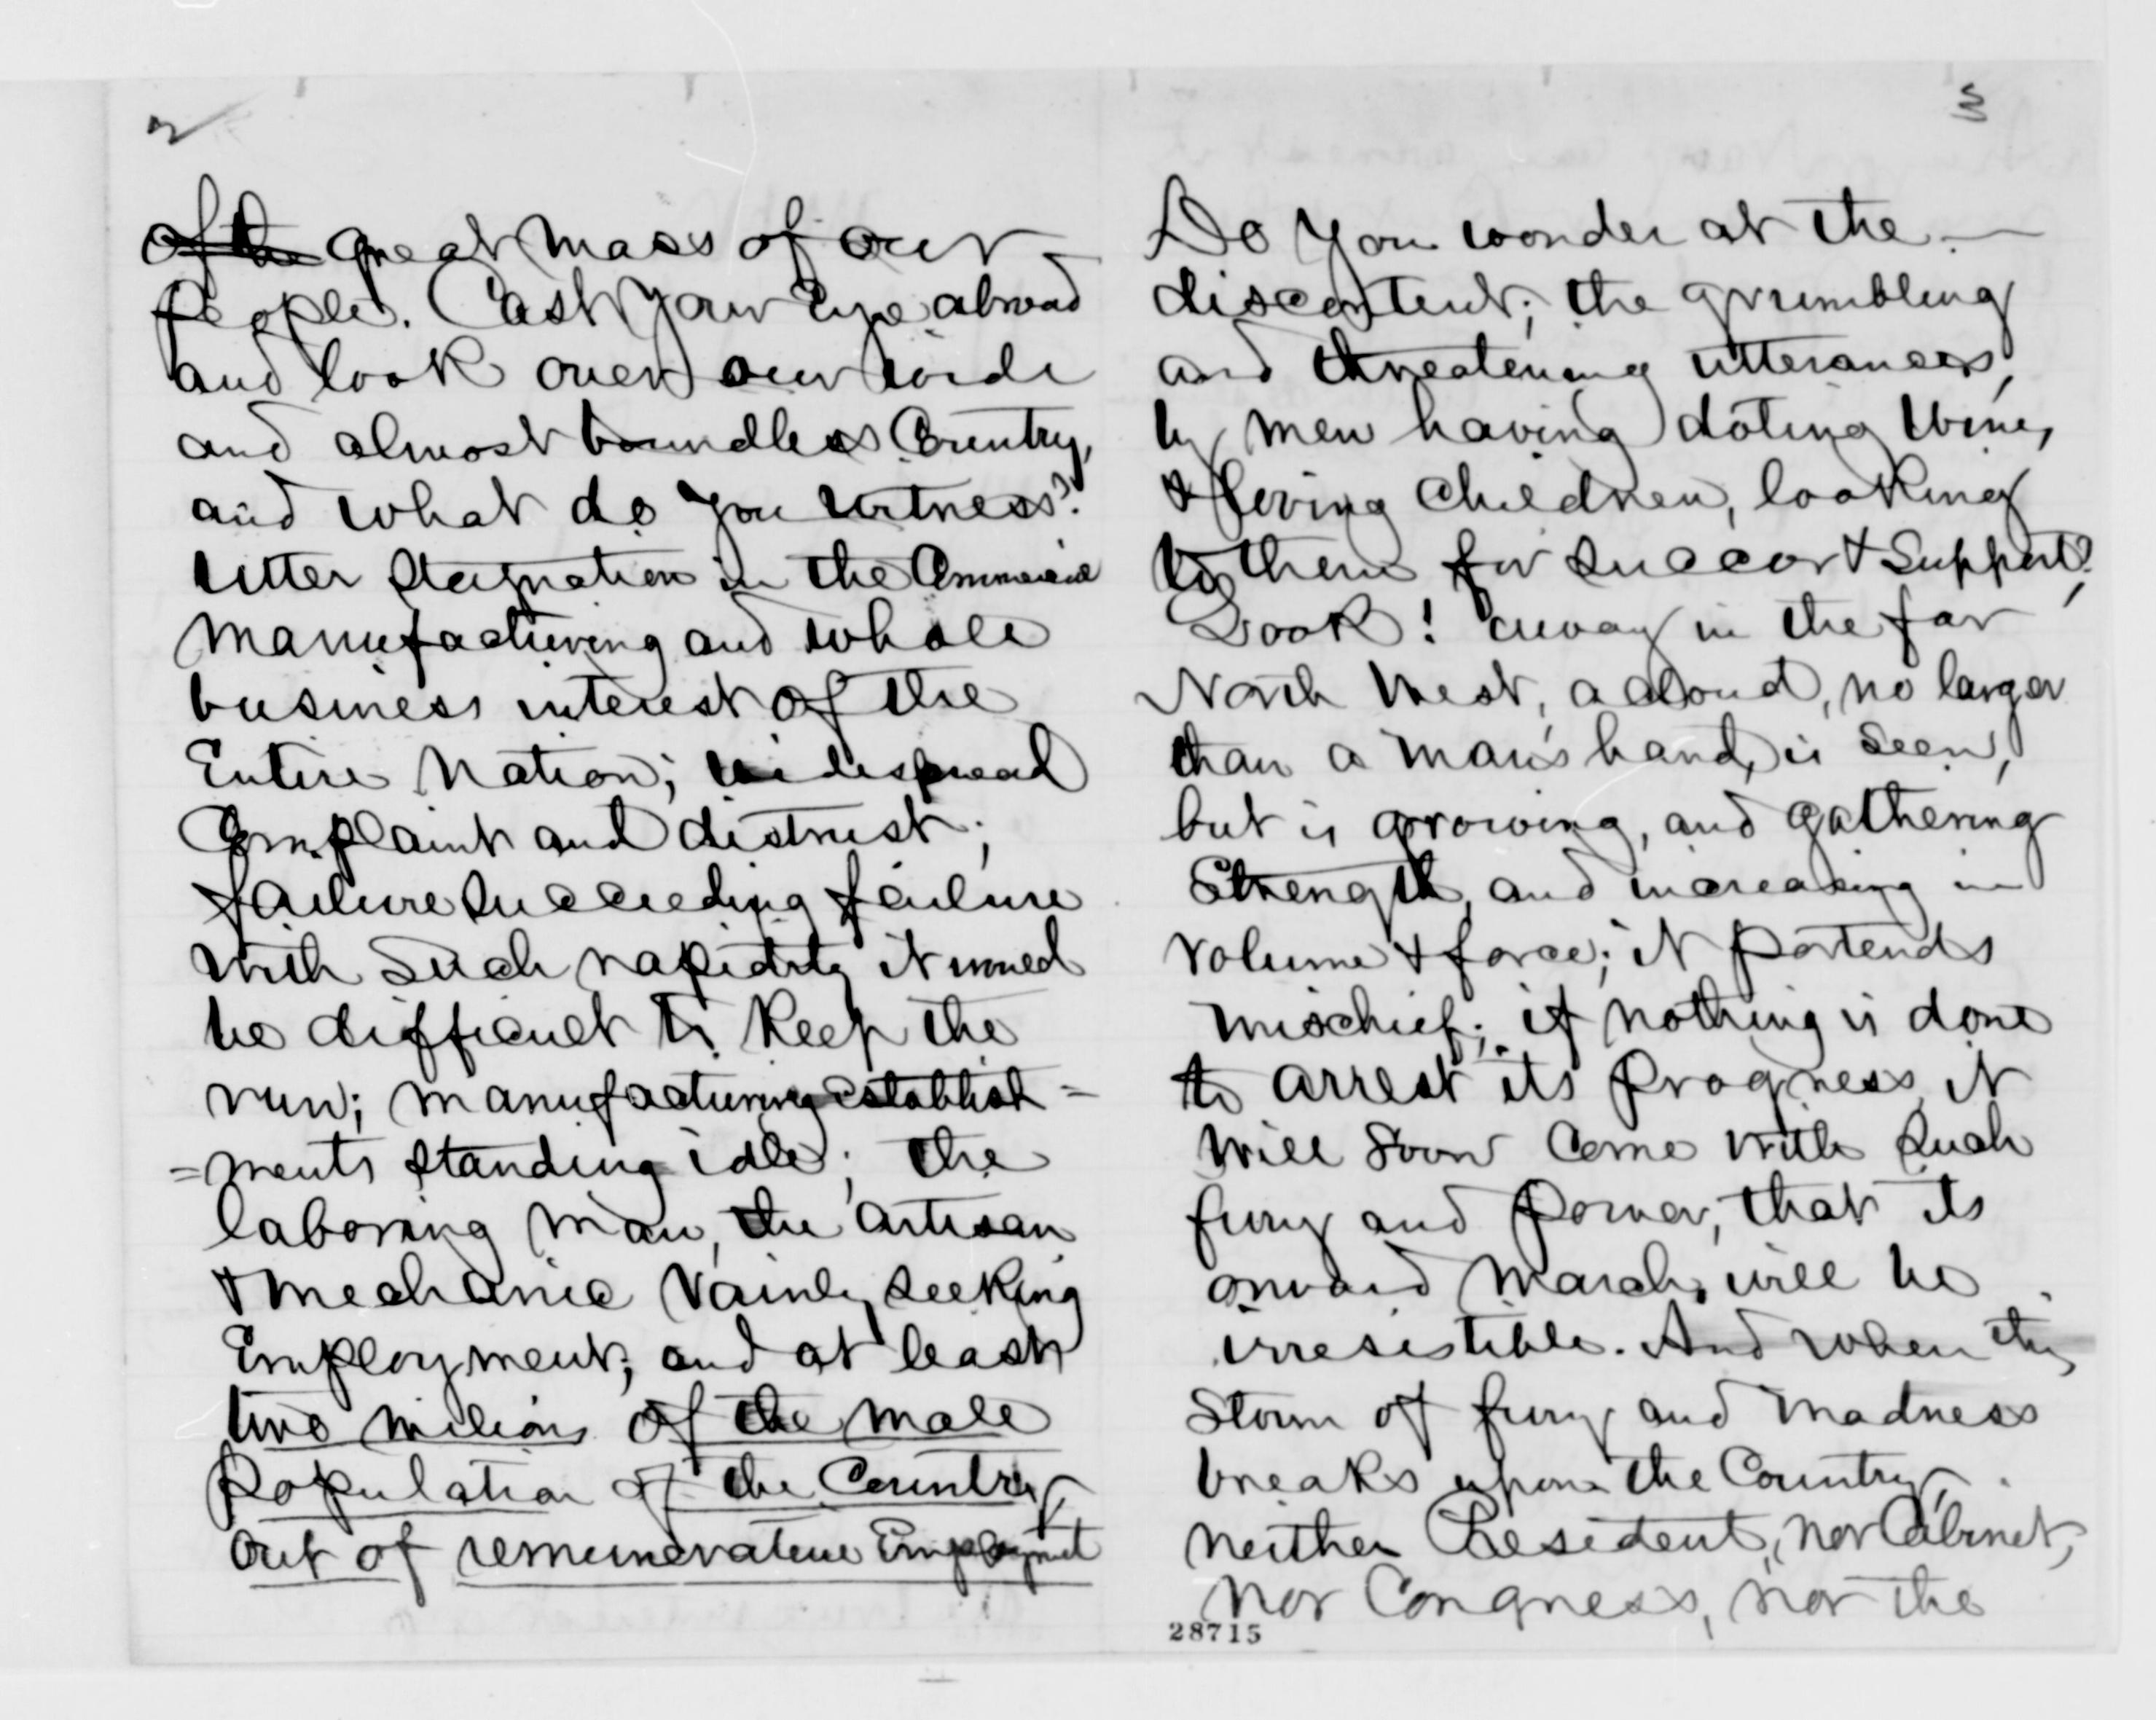 2
of the great mass of our
people. Cast your Eye abroad
and look over our wide
and almost boundless Country,
and what do you witness?
Utter stagnation in the Commercial
manufacturing and whole
business interest of the
Entire Nation; widespread
Complaint and distrust;
failure succeeding failure
with such rapidity it wued
be difficult to keep the
run; manufacturing establish=
=ments standing idle; the
laboring man, the artisan
& mechanic vainly seeking
Employment; and at least
two milions of the male
population of the Country,
out of remunerative Employmet
3
Do you wonder at the —
discontent; the grumbling
and threatening utterances,
by men having doting Wives,
& loving Children, looking
to them for succor & Support?
Look! away in the far
North West, a cloud, no larger
than a man's hand, is seen,
but is growing, and gathering
Strength, and increasing in
volume & force; it portends
mischief; if nothing is done
to arrest its progress, it
will soon Come with such
fury and power, that its
onward march, will be
irresistible. And when this
Storm of fury and madness
breaks upon the Country,
neither President, nor Cabinet,
nor Congress, nor the
28715